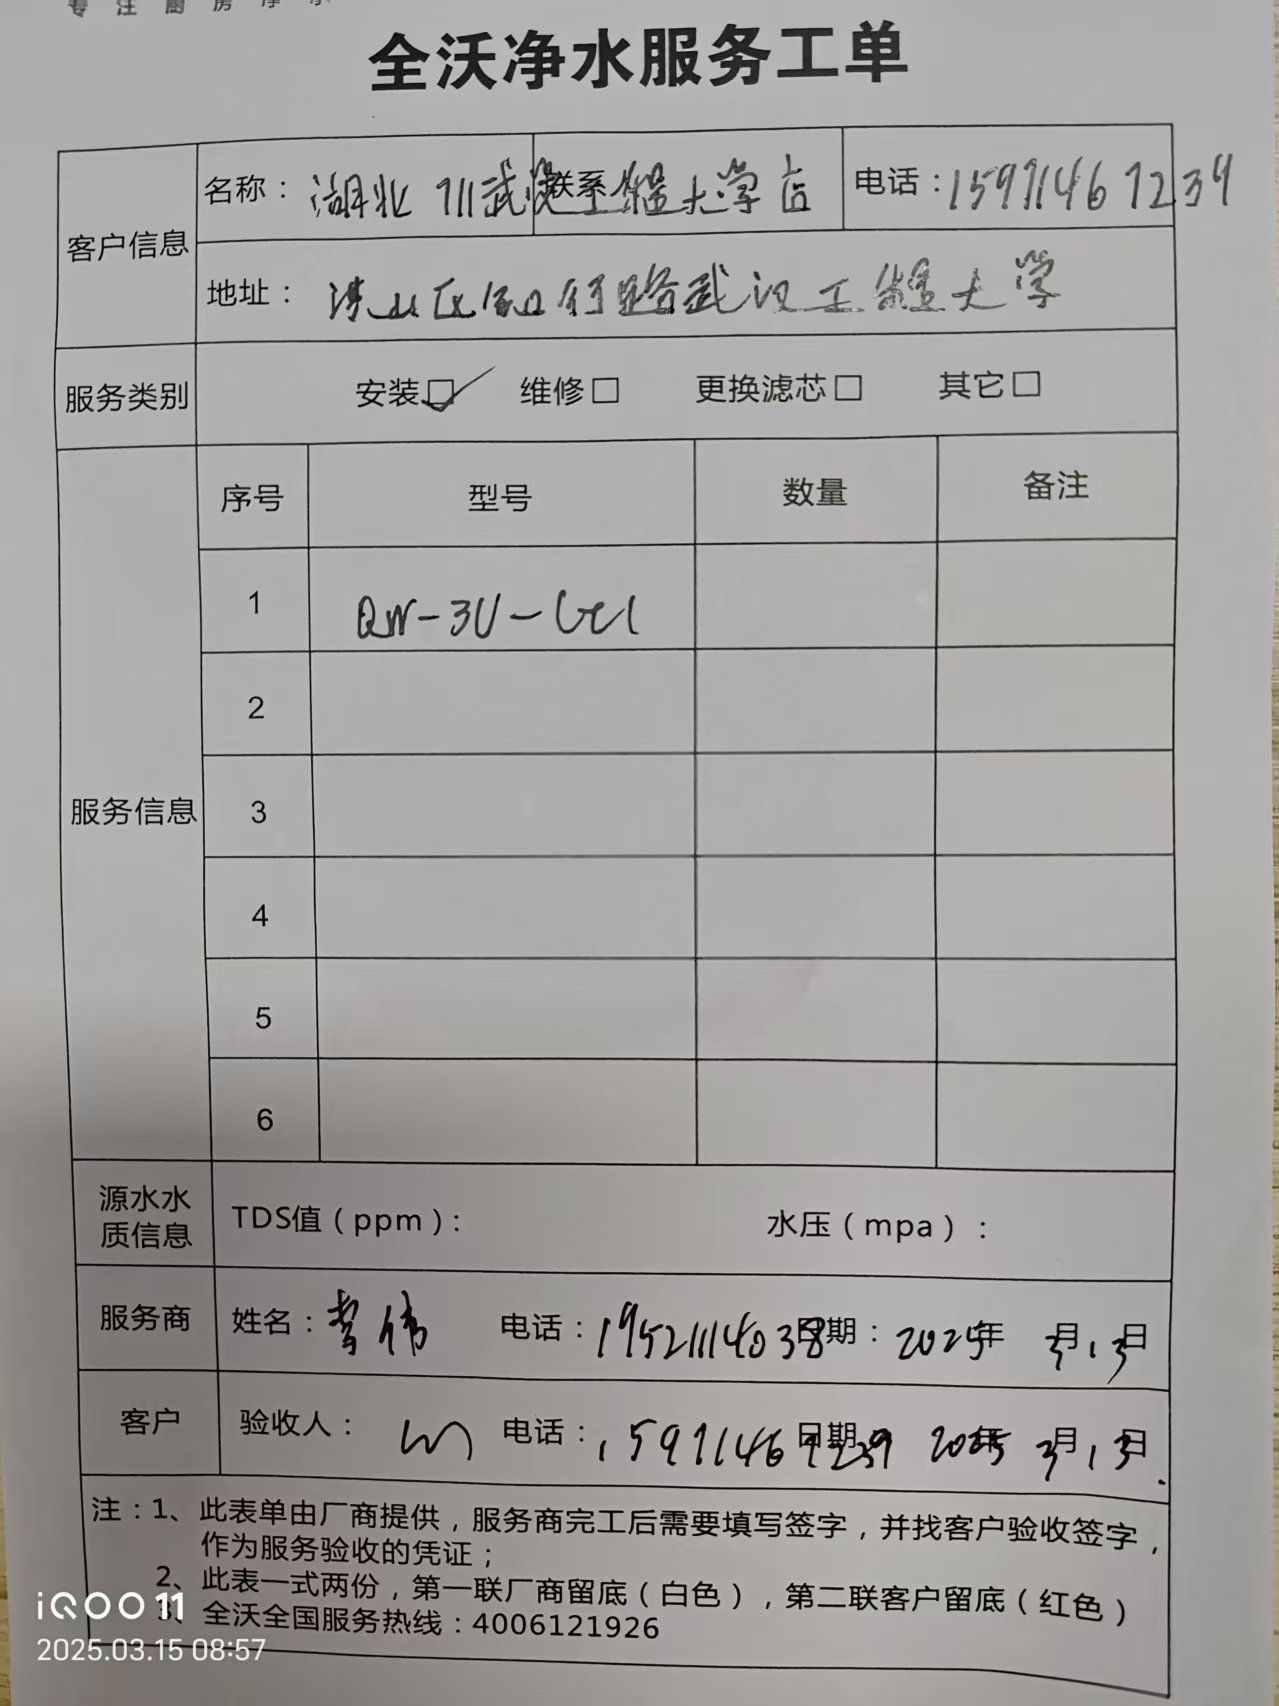 专 注 厨 房 净 水
全沃净水服务工单
客户信息
名称：湖北 711武汉工程大学店 联系 电话：15971467239
地址：洪山区 路武汉工程大学
服务类别 安装☑ 维修□ 更换滤芯□ 其它□
服务信息
序号 型号 数量 备注
1 QW-3U-
2
3
4
5
6
源水水质信息 TDS值（ppm）： 水压（mpa）：
服务商 姓名：李伟 电话：19521114038 日期：2025年 3月13日
客户 验收人： 电话：15971467239 日期 2025年 3月13日
注：1、此表单由厂商提供，服务商完工后需要填写签字，并找客户验收签字，
作为服务验收的凭证；
2、此表一式两份，第一联厂商留底（白色），第二联客户留底（红色）
3、全沃全国服务热线：4006121926
iQOO 11
2025.03.15 08:57